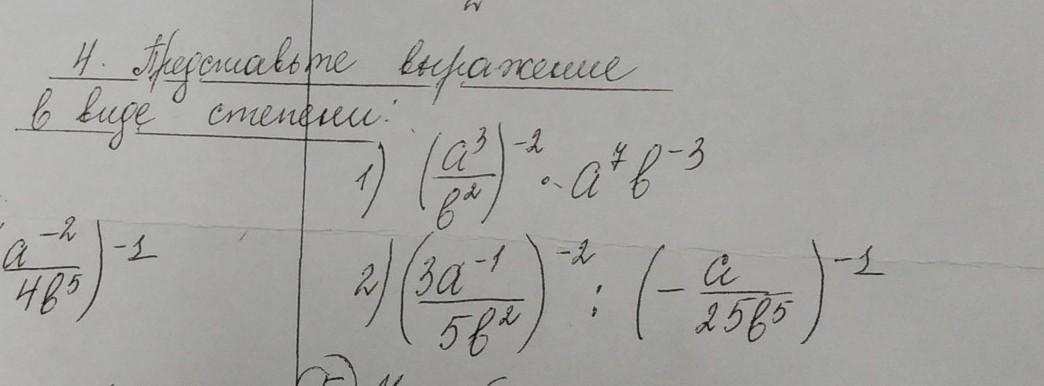 4. Представьте выражение
в виде степени:
1) (a³/b²)⁻² · a⁷b⁻³
a⁻²/4b⁵)⁻¹
2) (3a⁻¹/5b²)⁻² : (-a/25b⁵)⁻¹